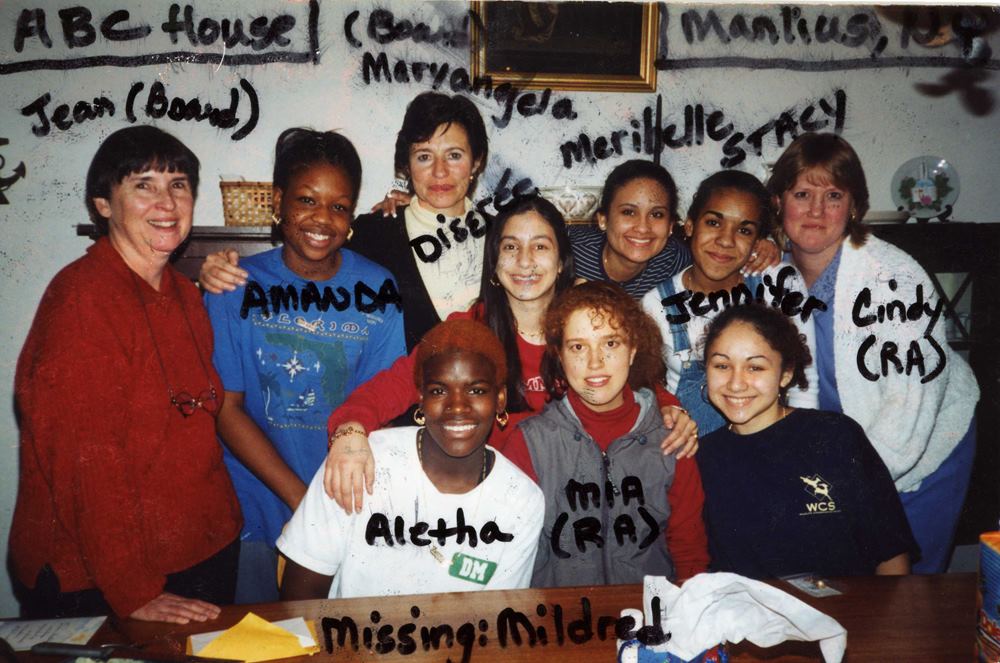 ABC House
(Board)
Manlius, NY,
Jean (Board)
Maryangela
Meribelle
STACY
Diseree
AMANDA
FLORIDA
Jennifer
Cindy
(RA)
MIA
(RA)
Aletha
DM
WCS
Missing: Mildred